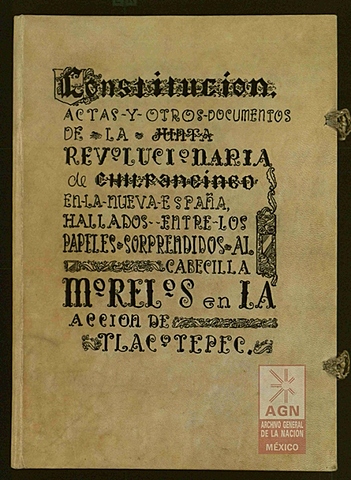 Constitucion.
ACTAS-Y-OTROS-DOCUMENTOS
DE LA JUNTA
REVOLUCIONARIA
de CHILPANCINCO
EN-LA-NUEVA-ESPAÑA,
HALLADOS--ENTRE-LOS
PAPELES SORPRENDIDOS AL
CABECILLA
MORELOS en LA
ACCION DE
TLACOTEPEC.
AGN
ARCHIVO GENERAL
DE LA NACIÓN
MÉXICO